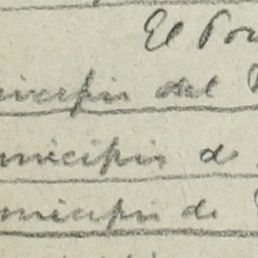 El Por
nicipio del
unicipio de
municipio de